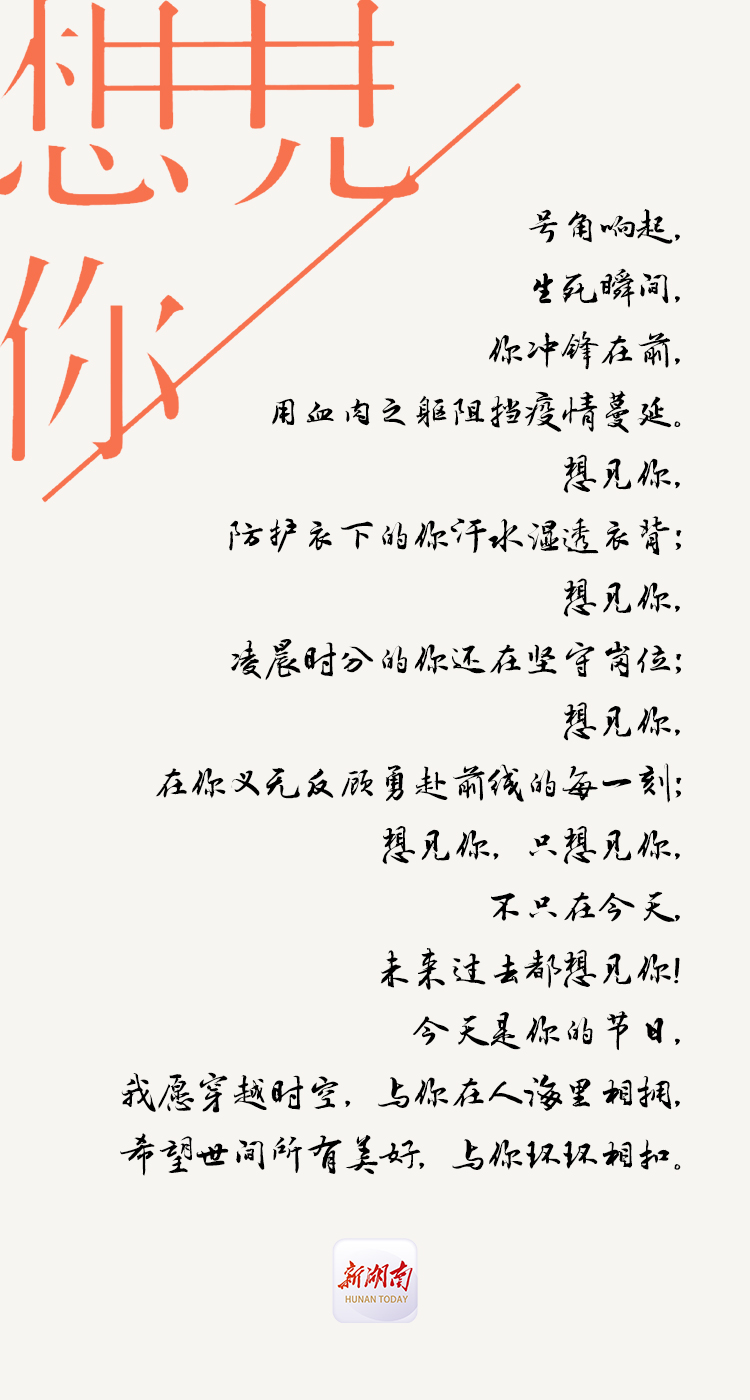 想见
你
号角响起,
生死瞬间,
你冲锋在前,
用血肉之躯阻挡疫情蔓延。
想见你,
防护衣下的你汗水湿透衣背;
想见你,
凌晨时分的你还在坚守岗位;
想见你,
在你义无反顾勇赴前线的每一刻;
想见你, 只想见你,
不只在今天,
未来过去都想见你!
今天是你的节日,
我愿穿越时空, 与你在人海里相拥,
希望世间所有美好, 与你环环相扣。
新湖南
HUNAN TODAY